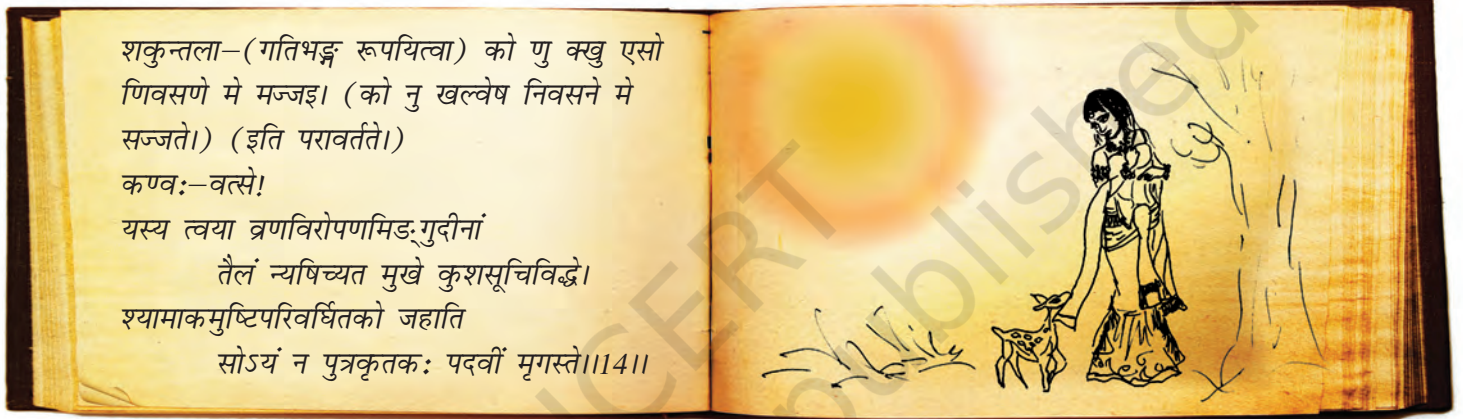 शकुन्तला–(गतिभङ्ग रूपयित्वा) को णु क्खु एसो
णिवसणे मे मज्जइ। (को नु खल्वेष निवसने मे
सज्जते।) (इति परावर्तते।)
कण्वः–वत्से!
यस्य त्वया व्रणविरोपणमिङ्गुदीनां
तैलं न्यषिच्यत मुखे कुशसूचिविद्धे।
श्यामाकमुष्टिपरिवर्धितको जहाति
सोऽयं न पुत्रकृतकः पदवीं मृगस्ते।।14।।
NCERT
published